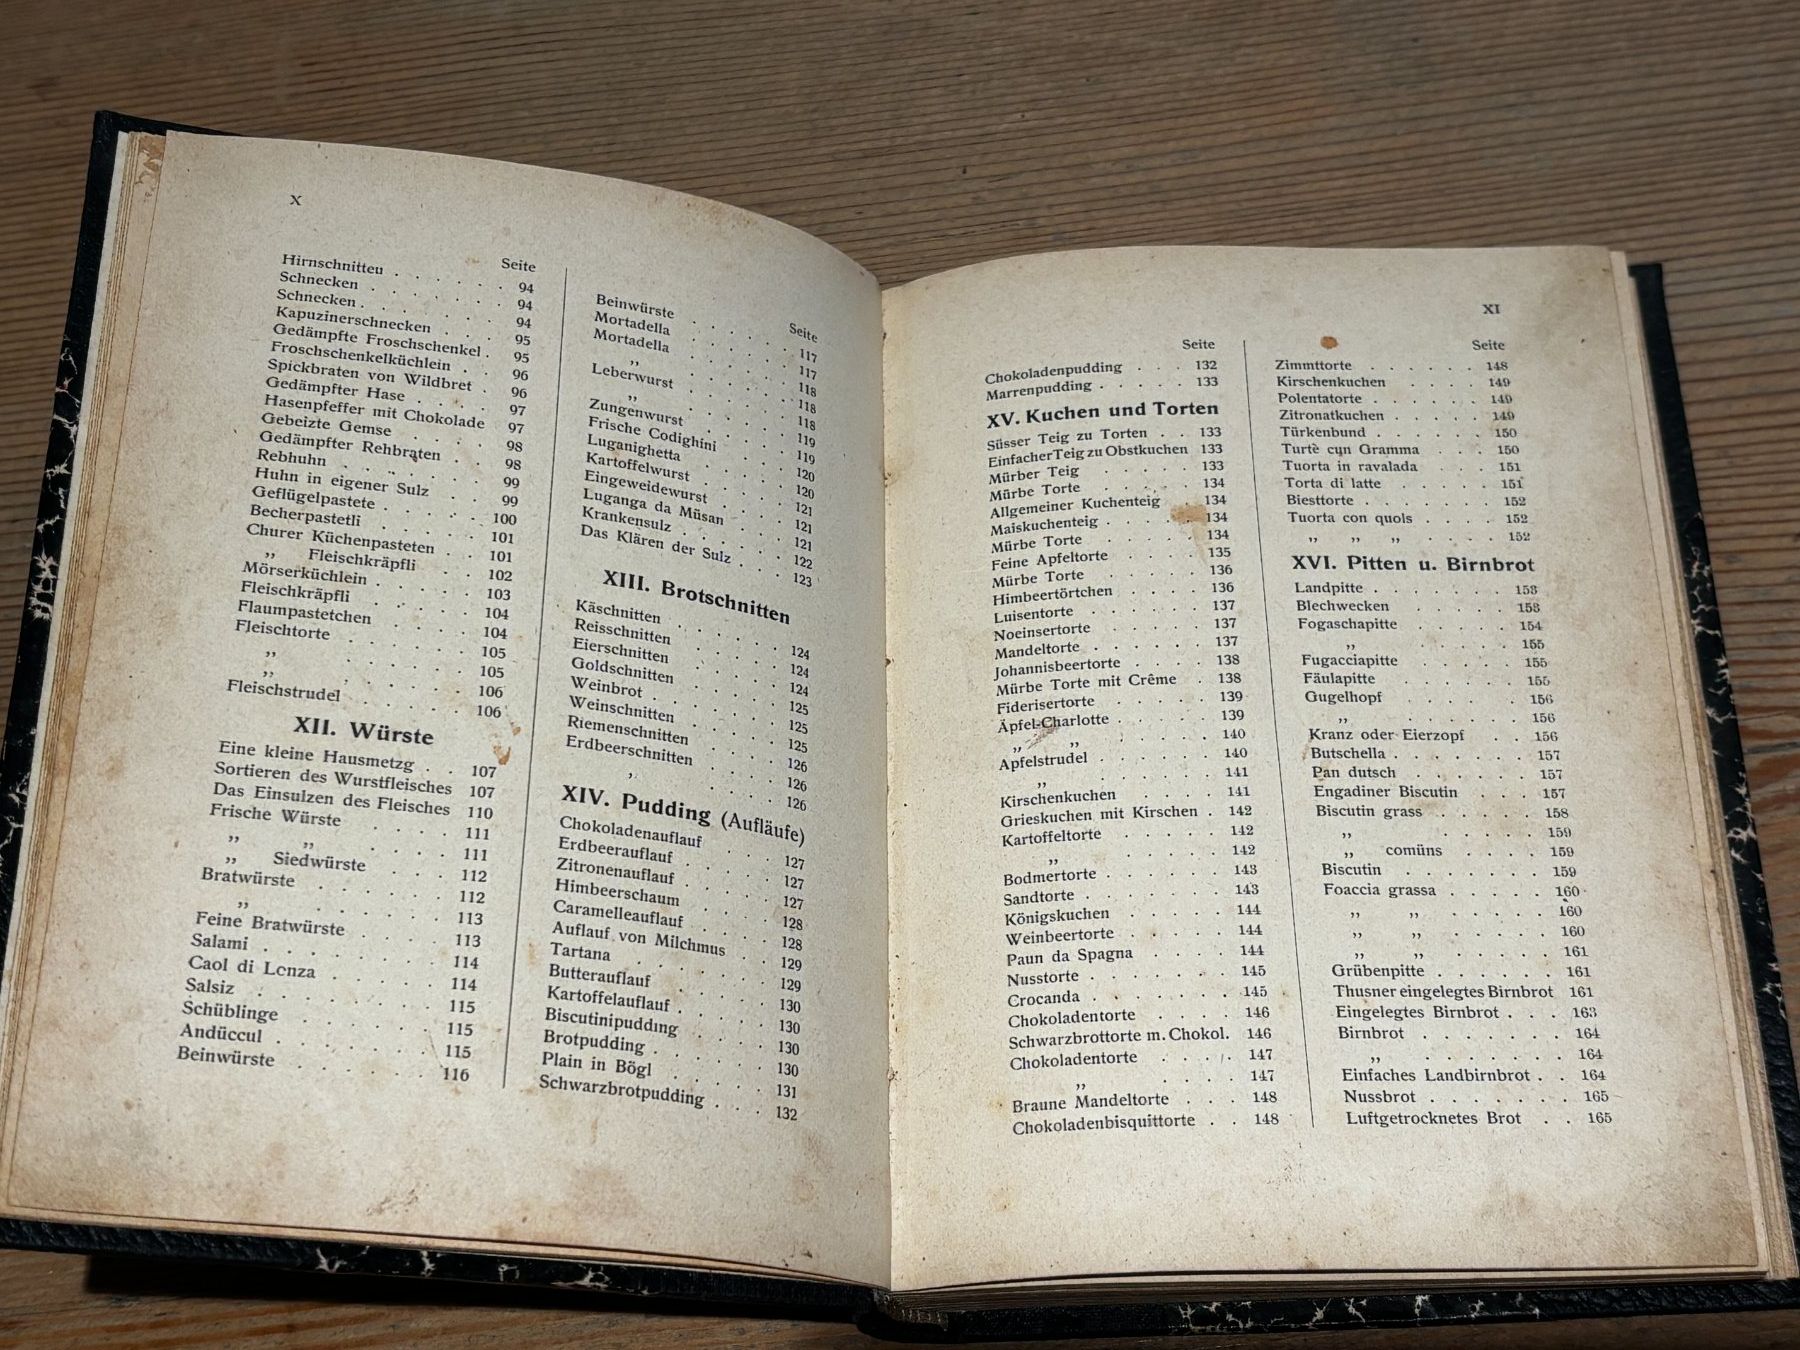 X
Seite
Hirnschnitten . . . . . . 94
Schnecken . . . . . . . 94
Schnecken . . . . . . . 94
Kapuzinerschnecken . . . . 95
Gedämpfte Froschschenkel . 95
Froschschenkelküchlein . . 96
Spickbraten von Wildbret . 96
Gedämpfter Hase . . . . . 97
Hasenpfeffer mit Chokolade 97
Gebeizte Gemse . . . . . 98
Gedämpfter Rehbraten . . 98
Rebhuhn . . . . . . . . 99
Huhn in eigener Sulz . . 99
Geflügelpastete . . . . . . 100
Becherpastetli . . . . . . 101
Churer Küchenpasteten . . 101
„ Fleischkräpfli . . 102
Mörserküchlein . . . . . . 103
Fleischkräpfli . . . . . . 104
Flaumpastetchen . . . . . 104
Fleischtorte . . . . . . . 105
„ . . . . . . . 105
„ . . . . . . . 106
Fleischstrudel . . . . . . 106
XII. Würste
Eine kleine Hausmetzg . . 107
Sortieren des Wurstfleisches 107
Das Einsulzen des Fleisches 110
Frische Würste . . . . 111
„ „ . . . . 111
„ Siedwürste . . . 112
Bratwürste . . . . . . 112
„ . . . . . . 113
Feine Bratwürste . . . . 113
Salami . . . . . . . . 114
Caol di Lenza . . . . . 114
Salsiz . . . . . . . . 115
Schüblinge . . . . . . 115
Andüccul . . . . . . . 115
Beinwürste . . . . . . 116
Seite
Beinwürste . . . . . . 117
Mortadella . . . . . . 117
Mortadella . . . . . . 118
„ . . . . . . 118
Leberwurst . . . . . . 118
„ . . . . . . 119
Zungenwurst . . . . . 119
Frische Codighini . . . . 120
Luganighetta . . . . . 120
Kartoffelwurst . . . . . 121
Eingeweidewurst . . . . 121
Luganga da Müsan . . . 121
Krankensulz . . . . . . 122
Das Klären der Sulz . . . 123
XIII. Brotschnitten
Käschnitten . . . . . . 124
Reisschnitten . . . . . 124
Eierschnitten . . . . . 124
Goldschnitten . . . . . 125
Weinbrot . . . . . . . 125
Weinschnitten . . . . . 125
Riemenschnitten . . . . 126
Erdbeerschnitten . . . . 126
, . . . . 126
XIV. Pudding (Aufläufe)
Chokoladenauflauf . . . 127
Erdbeerauflauf . . . . . 127
Zitronenauflauf . . . . . 127
Himbeerschaum . . . . 128
Caramelleauflauf . . . . 128
Auflauf von Milchmus . . 129
Tartana . . . . . . . 129
Butterauflauf . . . . . 130
Kartoffelauflauf . . . . . 130
Biscutinipudding . . . . 130
Brotpudding . . . . . . 130
Plain in Bögl . . . . . 131
Schwarzbrotpudding . . . 132
XI
Seite
Chokoladenpudding . . . 132
Marrenpudding . . . . . 133
XV. Kuchen und Torten
Süsser Teig zu Torten . . 133
Einfacher Teig zu Obstkuchen 133
Mürber Teig . . . . . 133
Mürbe Torte . . . . . 134
Allgemeiner Kuchenteig . 134
Maiskuchenteig . . . . . 134
Mürbe Torte . . . . . 134
Feine Apfeltorte . . . . 135
Mürbe Torte . . . . . 136
Himbeertörtchen . . . . 136
Luisentorte . . . . . . 137
Noeinsertorte . . . . . 137
Mandeltorte . . . . . . 137
Johannisbeertorte . . . . 138
Mürbe Torte mit Crême . 138
Fiderisertorte . . . . . 139
Äpfel-Charlotte . . . . . 139
„ „ . . . . . 140
Apfelstrudel . . . . . . 140
„ . . . . . . 141
Kirschenkuchen . . . . 141
Grieskuchen mit Kirschen . 142
Kartoffeltorte . . . . . 142
„ . . . . . 142
Bodmertorte . . . . . . 143
Sandtorte . . . . . . 143
Königskuchen . . . . . 144
Weinbeertorte . . . . . 144
Paun da Spagna . . . . 144
Nusstorte . . . . . . . 145
Crocanda . . . . . . . 145
Chokoladentorte . . . . 146
Schwarzbrottorte m. Chokol. 146
Chokoladentorte . . . . 147
„ . . . . 147
Braune Mandeltorte . . . 148
Chokoladenbisquittorte . . 148
Seite
Zimmttorte . . . . . . 148
Kirschenkuchen . . . . 149
Polentatorte . . . . . . 149
Zitronatkuchen . . . . . 149
Türkenbund . . . . . . 150
Turtè cun Gramma . . . 150
Tuorta in ravalada . . . 151
Torta di latte . . . . . 151
Biesttorte . . . . . . 152
Tuorta con quols . . . . 152
„ „ „ . . . . 152
XVI. Pitten u. Birnbrot
Landpitte . . . . . . . 153
Blechwecken . . . . . 153
Fogaschapitte . . . . . 154
„ . . . . . 155
Fugacciapitte . . . . . 155
Fäulapitte . . . . . . 155
Gugelhopf . . . . . . 156
„ . . . . . . 156
Kranz oder Eierzopf . . 156
Butschella . . . . . . . 157
Pan dutsch . . . . . . 157
Engadiner Biscutin . . . 157
Biscutin grass . . . . . 158
„ . . . . . 159
„ comüns . . . . 159
Biscutin . . . . . . . 159
Foaccia grassa . . . . . 160
„ „ . . . . . 160
„ „ . . . . . 160
„ „ . . . . . 161
Grübenpitte . . . . . . 161
Thusner eingelegtes Birnbrot 161
Eingelegtes Birnbrot . . . 163
Birnbrot . . . . . . . 164
„ . . . . . . . 164
Einfaches Landbirnbrot . . 164
Nussbrot . . . . . . . 165
Luftgetrocknetes Brot . . 165